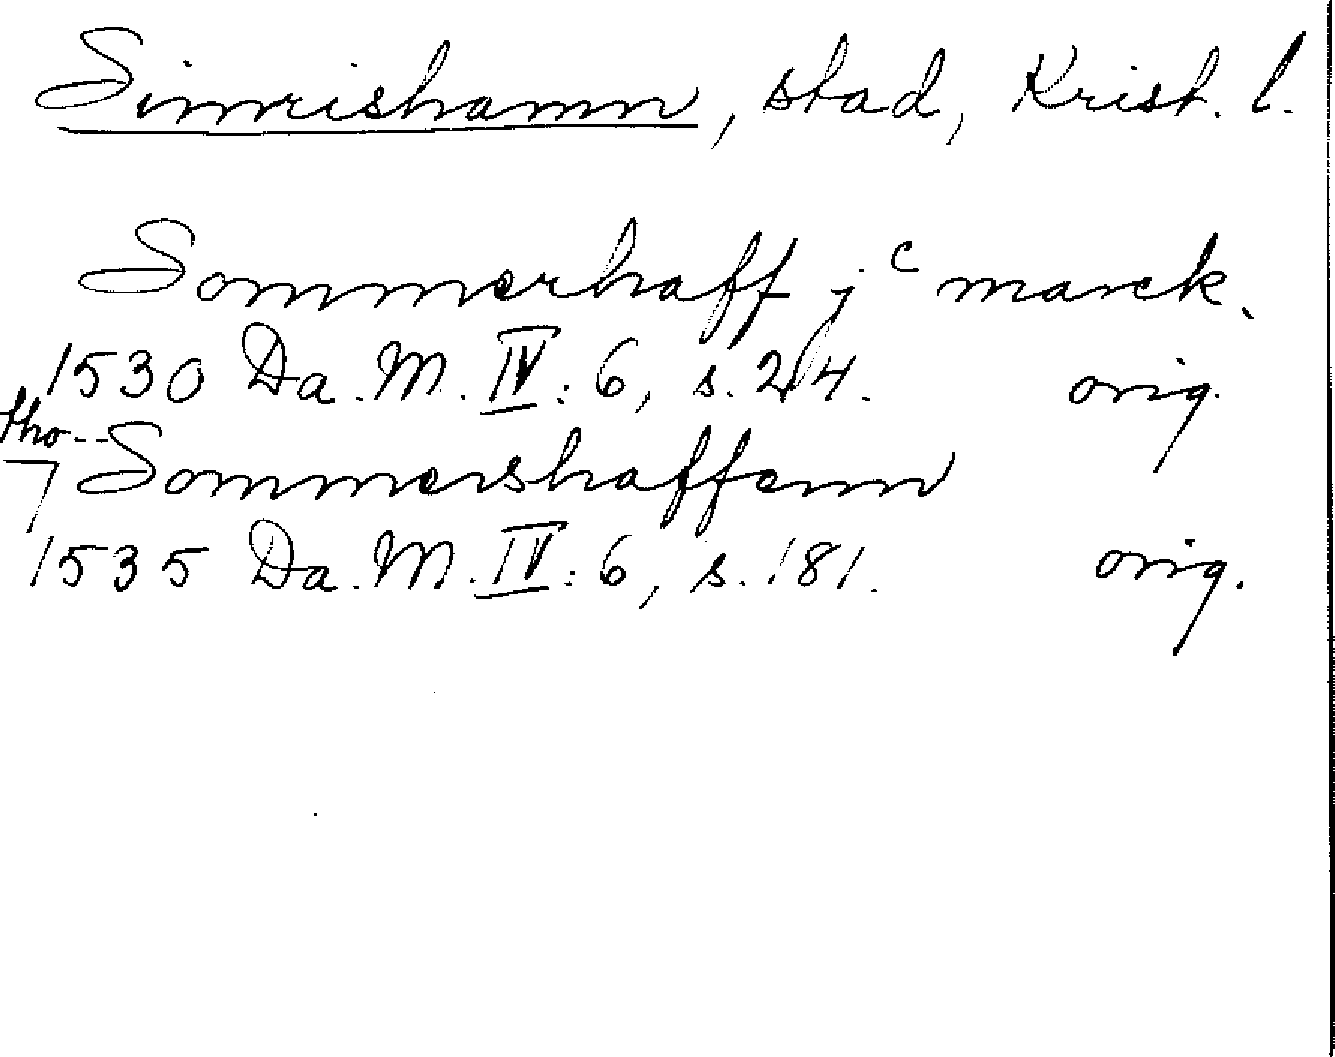 Simrishamn, stad, Krist. l.
Sommerhaff j c marck.
1530 Da. M. IV: 6, s. 24.
orig.
tho--
7 Sommershaffenn
1535 Da. M. IV: 6, s. 181.
orig.